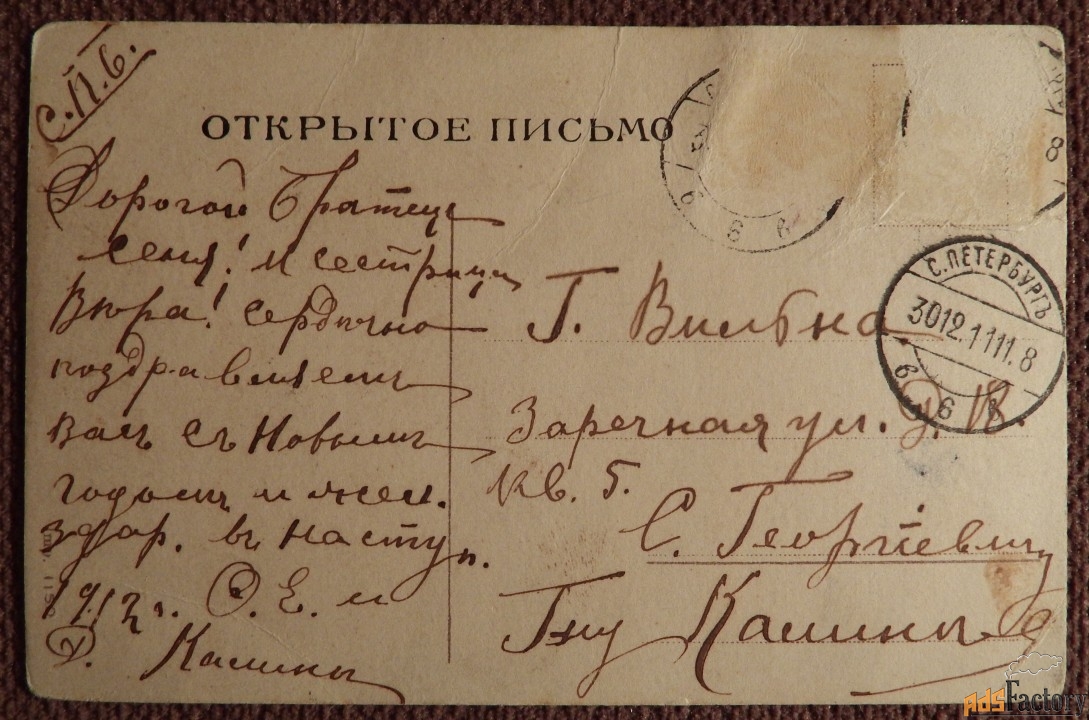 С.П.б.
ОТКРЫТОЕ ПИСЬМО
Дорогой Братецъ
Сеня! и сестрица
Вюра! сердечно
поздравляемъ
Васъ съ Новымъ
годомъ и жел.
здор. въ наступ.
1912 г. О. Е. и
Д. Калины
Г. Вильна
Заречная ул. д. 18.
кв. 5.
С. Георгіевичу
Гну Калины
С.ПЕТЕРБУРГЪ
30 12.11 11.8
8
6
AdsFactory